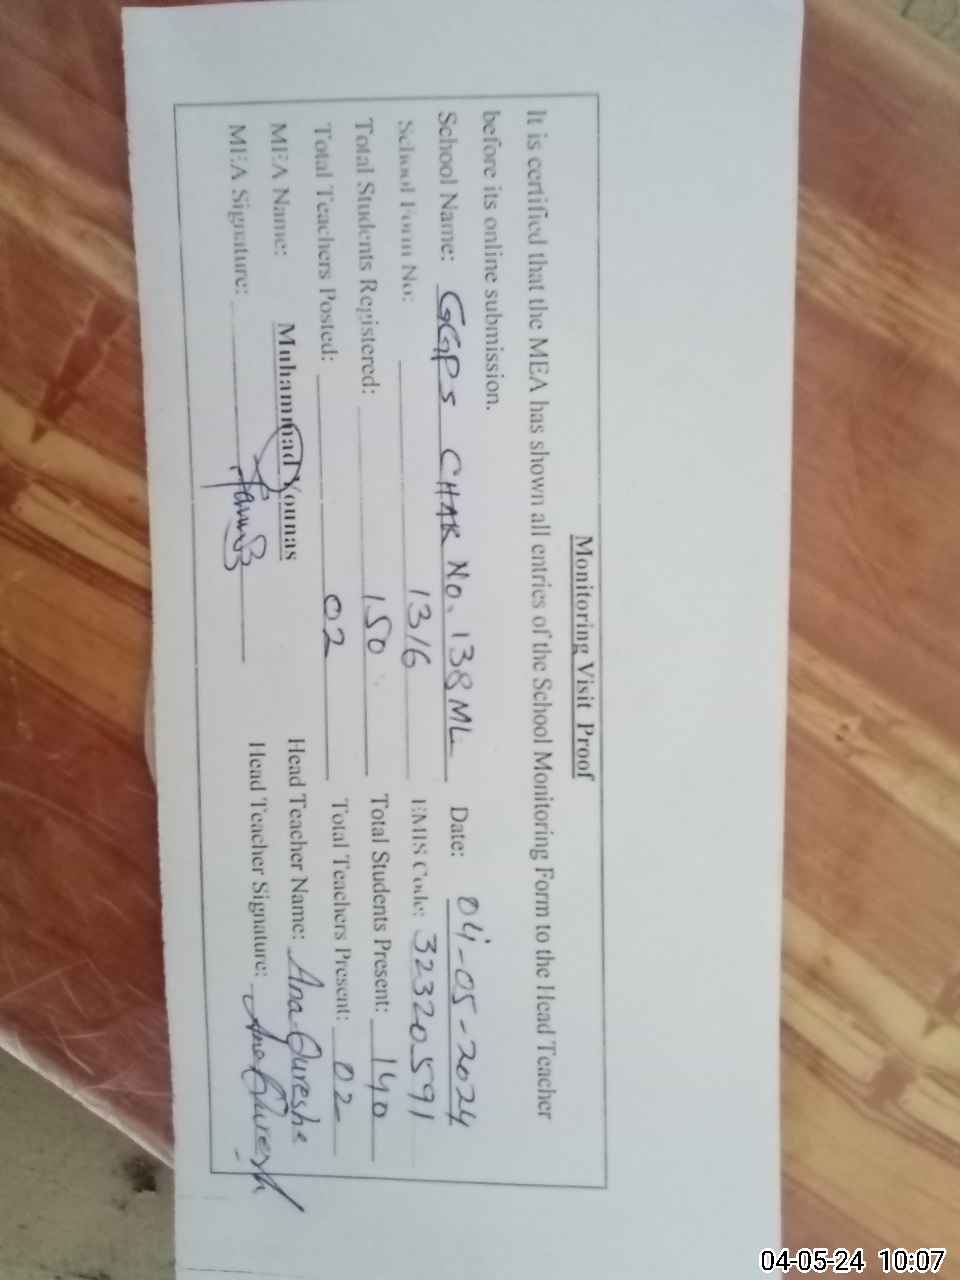 Monitoring Visit Proof
It is certified that the MEA has shown all entries of the School Monitoring Form to the Head Teacher
before its online submission.
School Name: GGPS CHAK No. 138 ML Date: 04-05-2024
School Form No: 1316 EMIS Code: 32320591
Total Students Registered: 150 Total Students Present: 140
Total Teachers Posted: 02 Total Teachers Present: 02
MEA Name: Muhammad Younas Head Teacher Name: Ana Qureshe
MEA Signature: Head Teacher Signature: Ana Quresh
04-05-24 10:07